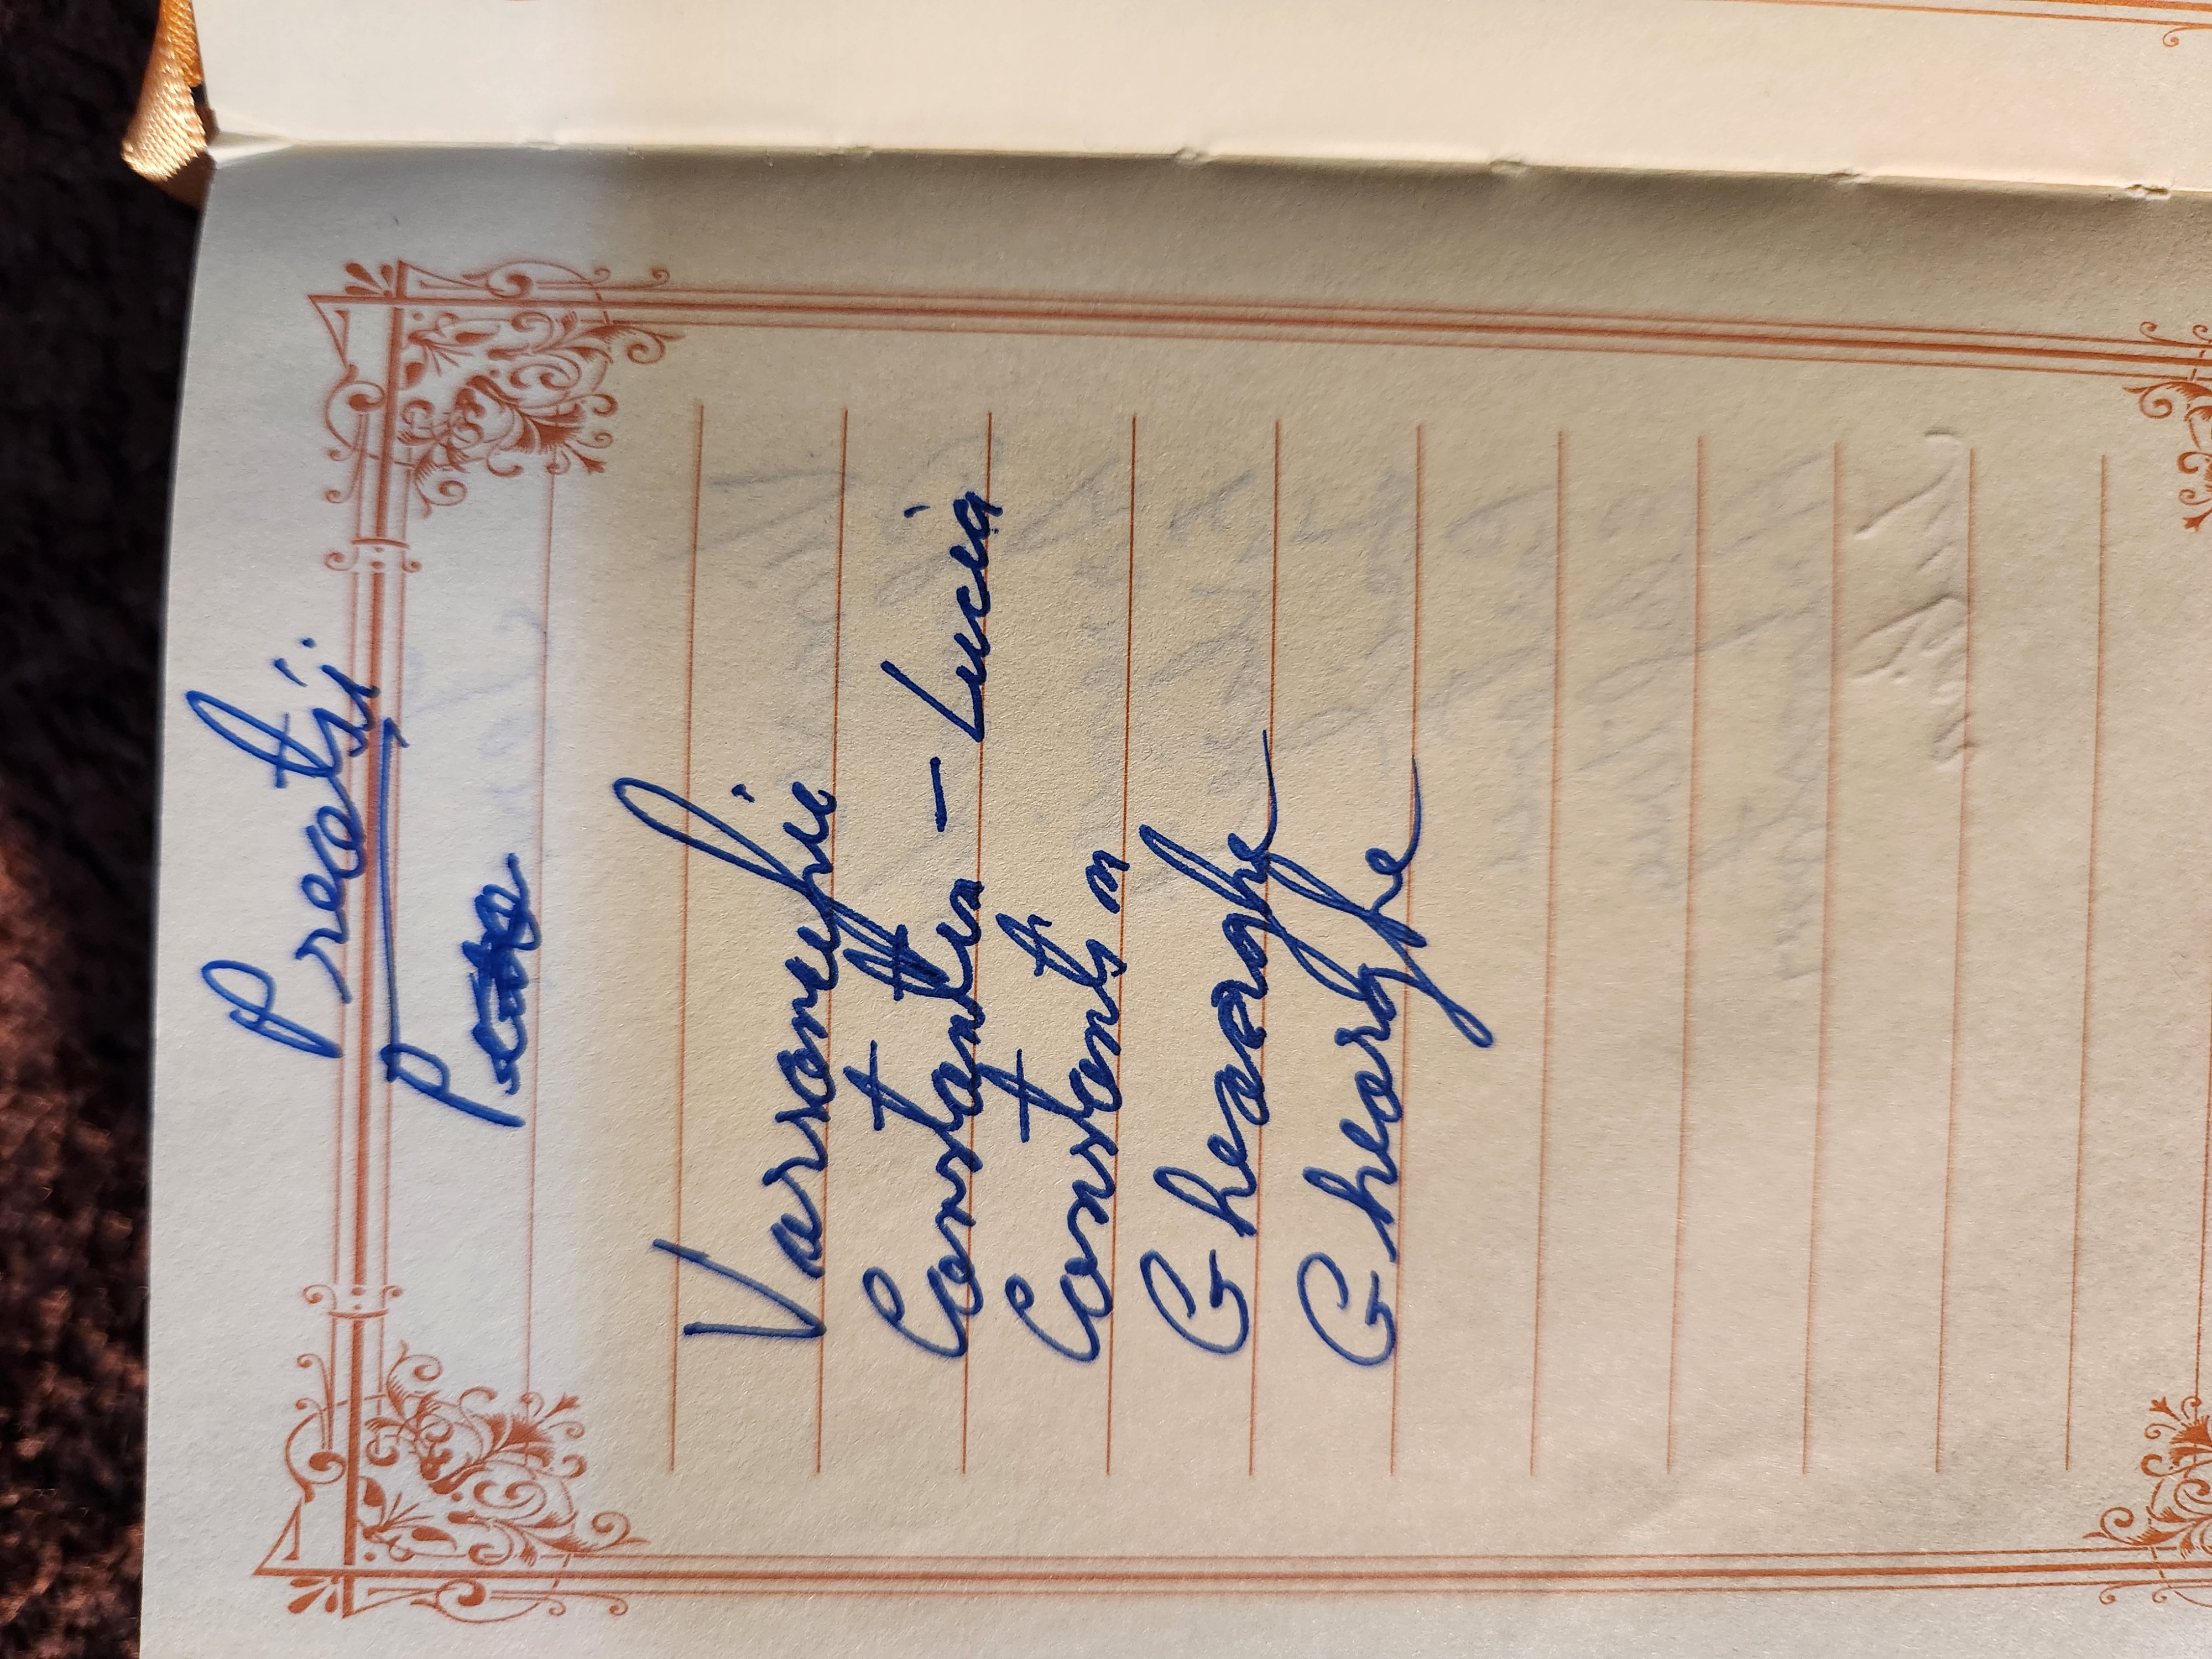 Preotsi:
Varsanufie
Constantin - Lucia
Constantin
Gheorghe
Gheorghe